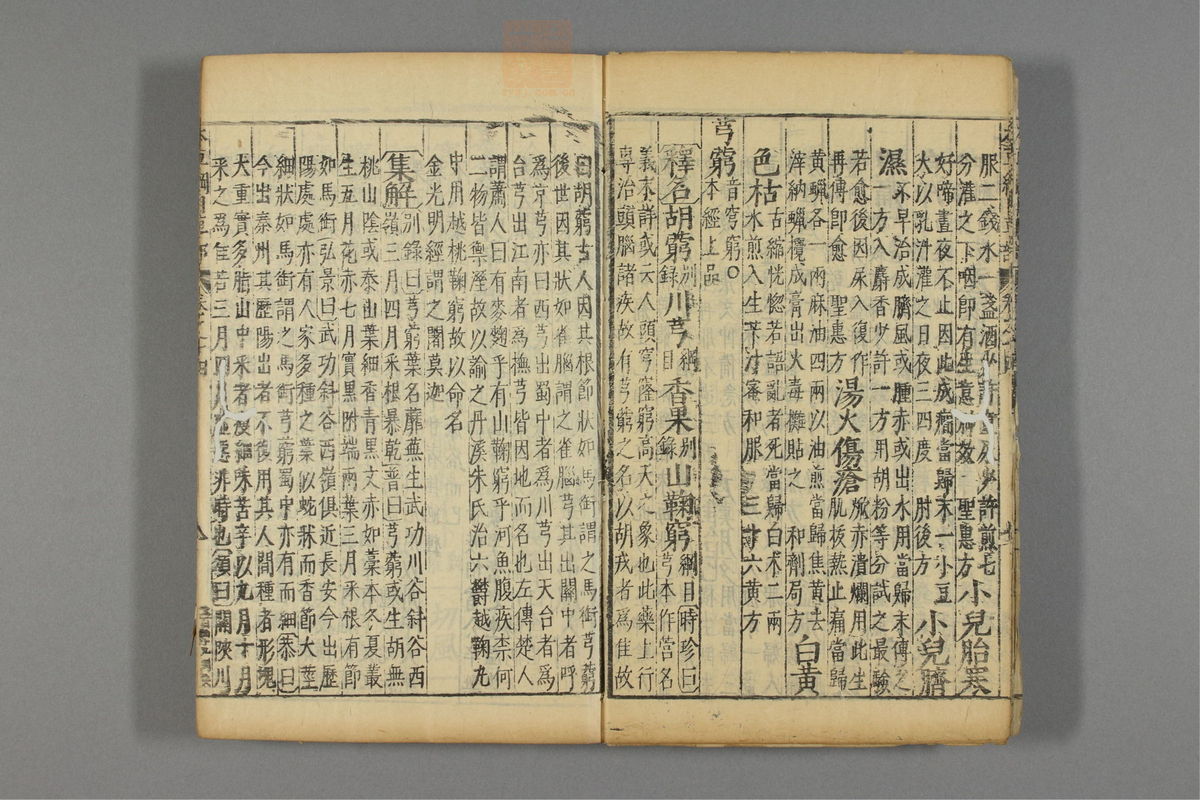 服二錢水一盞酒少許煎七
分灌之下咽即有生意聖惠方小兒胎寒
好啼晝夜不止因此成癇當歸末一小豆
大以乳汁灌之日夜三四度肘後方小兒臍
濕不早治成臍風或腫赤或出水用當歸末傅之
一方入麝香少許一方用胡粉等分試之最驗
若愈後因尿入復作
再傅即愈聖惠方湯火傷瘡𤈦赤潰爛用此生
肌拔熱止痛當歸
黃蠟各一兩麻油四兩以油煎當歸焦黃去
滓納蠟攪成膏出火毒攤貼之和劑局方白黃
色枯舌縮恍惚若語亂者死當歸白朮二兩
水煎入生苄汁蜜和服三十六黃方
芎藭音穹窮○
本經上品
釋名胡藭別錄川芎綱目香果別錄山鞠窮綱目時珍曰
芎本作营名
義未詳或云人頭穹窿窮高天之象也此藥上行
專治頭腦諸疾故有芎藭之名以胡戎者爲佳故
曰胡藭古人因其根節狀如馬銜謂之馬銜芎藭
後世因其狀如雀腦謂之雀腦芎其出關中者呼
爲京芎亦曰西芎出蜀中者爲川芎出天台者爲
台芎出江南者爲撫芎皆因地而名也左傳楚人
謂蕭人曰有麥麴乎有山鞠窮乎河魚腹疾柰何
二物皆禦溼故以諭之丹溪朱氏治六鬱越鞠丸
中用越桃鞠窮故以命名
金光明經謂之闍莫迦
集解別錄曰芎藭葉名蘼蕪生武功川谷斜谷西
嶺三月四月采根暴乾普曰芎藭或生胡無
桃山陰或泰山葉細香青黑文赤如藁本冬夏叢
生五月花赤七月實黑附端兩葉三月采根有節
如馬銜弘景曰武功斜谷西嶺俱近長安今出歷
陽處處亦有人家多種之葉似蛇牀而香節大莖
細狀如馬銜謂之馬銜芎藭蜀中亦有而細恭曰
今出秦州其歷陽出者不復用其人間種者形塊
大重實多脂山中采者瘦細味苦辛以九月十月
采之爲佳若三月四月虛惡非時也頌曰關陝川